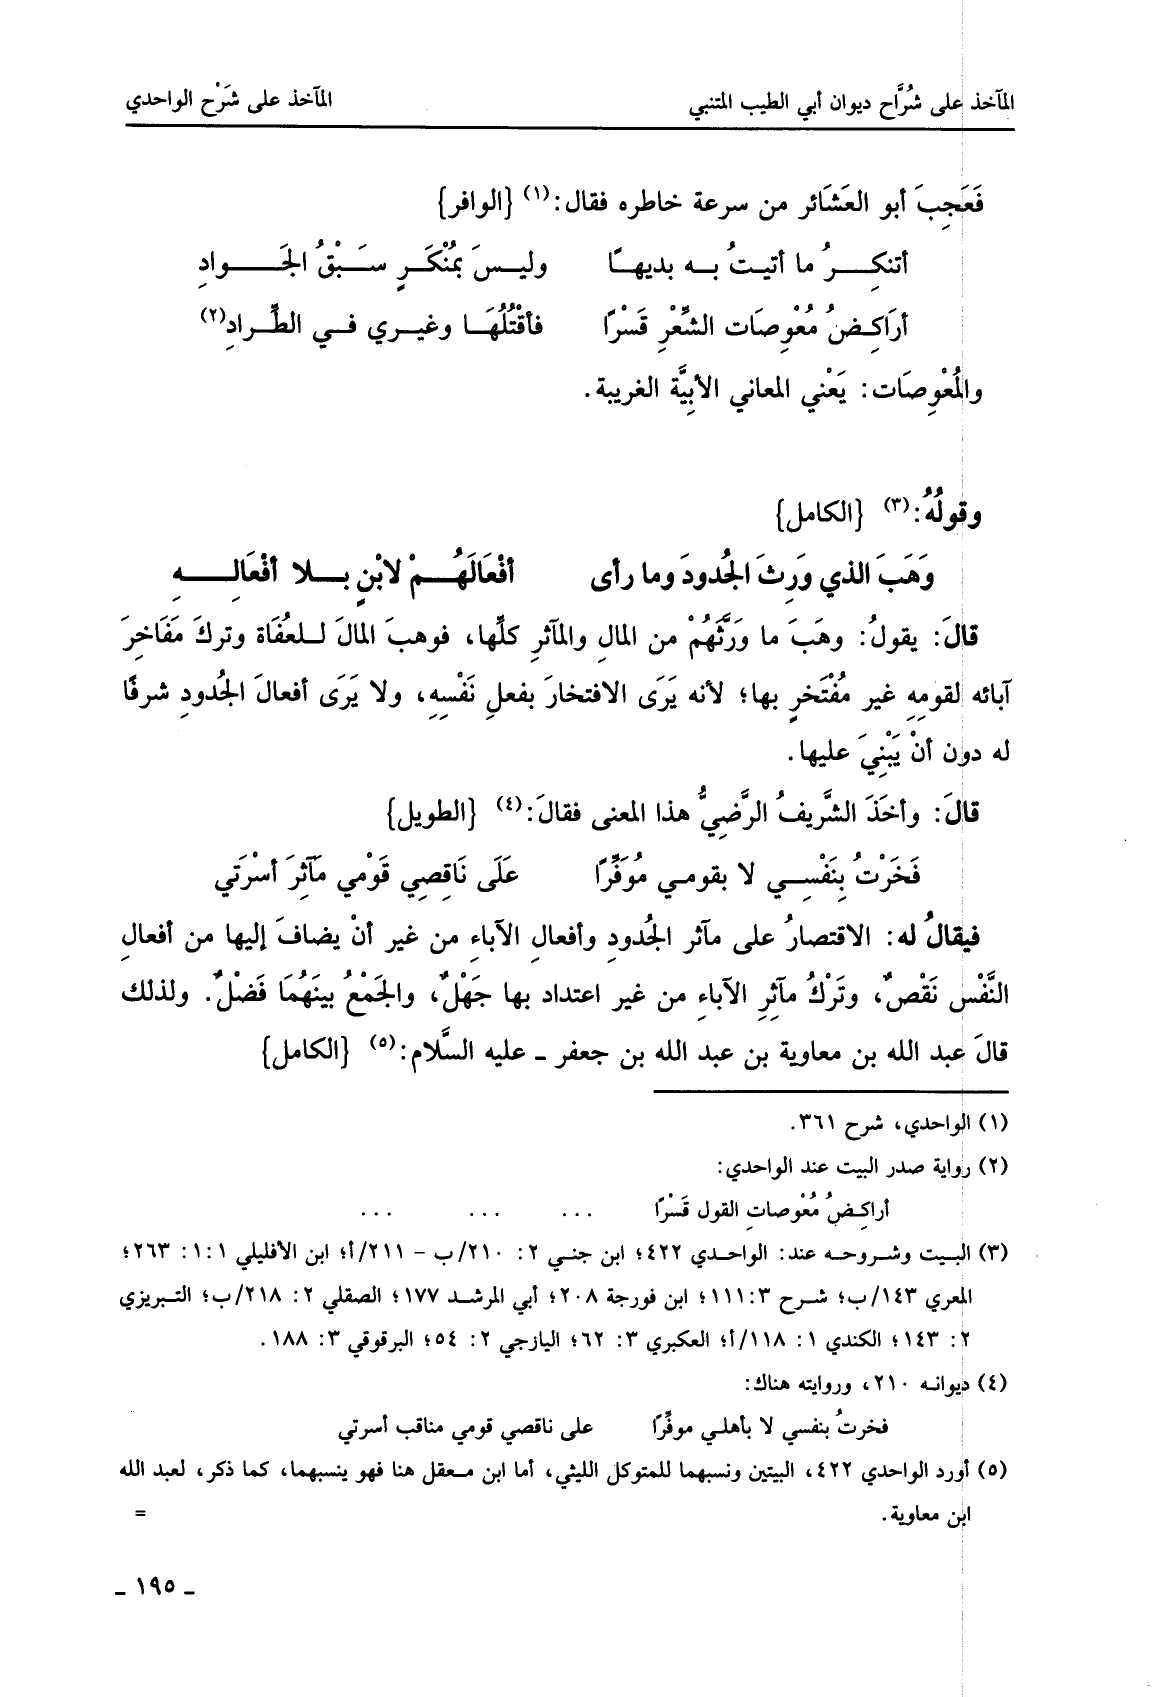 المآخذ على شُرَّاح ديوان أبي الطيب المتنبي المآخذ على شَرْح الواحدي
فَعَجِبَ أبو العَشَائر من سرعة خاطره فقال:(١) {الوافر}
أتنكِرُ ما أتيتُ به بديهًا وليسَ بمُنْكَرٍ سَبْقُ الجَوادِ
أرَاكِضُ مُعْوِصَات الشِّعْرِ قَسْرًا فأقْتُلُهَا وغيري في الطِّرادِ(٢)
والمُعْوِصَات: يَعْني المعاني الأبِيَّة الغريبة.
وقولُهُ:(٣) {الكامل}
وَهَبَ الذي وَرِثَ الجُدودَ وما رأى أفْعَالَهُمْ لابْنٍ بلا أفْعَالِهِ
قالَ: يقولُ: وهَبَ ما وَرَّثَهُمْ من المالِ والمآثرِ كلِّها، فوهبَ المالَ للعُفَاة وتركَ مَفَاخِرَ
آبائه لقومِهِ غير مُفْتَخرٍ بها؛ لأنه يَرَى الافتخارَ بفعلِ نَفْسِهِ، ولا يَرَى أفعالَ الجُدودِ شرفًا
له دون أنْ يَبْنِيَ عليها.
قالَ: وأخَذَ الشَّريفُ الرَّضِيُّ هذا المعنى فقالَ:(٤) {الطويل}
فَخَرْتُ بِنَفْسِي لا بقومي مُوَفِّرًا عَلَى نَاقِصِي قَوْمي مَآثِرَ أسْرَتي
فيقالُ له: الاقتصارُ على مآثر الجُدودِ وأفعالِ الآباء من غير أنْ يضافَ إليها من أفعالِ
النَّفْسِ نَقْصٌ، وتَرْكُ مآثِرِ الآباءِ من غير اعتداد بها جَهْلٌ، والجَمْعُ بينَهُمَا فَضْلٌ. ولذلك
قالَ عبد الله بن معاوية بن عبد الله بن جعفر ـ عليه السَّلام:(٥) {الكامل}
(١) الواحدي، شرح ٣٦١.
(٢) رواية صدر البيت عند الواحدي:
أراكِضُ مُعْوصاتِ القول قَسْرًا ... ... ...
(٣) البيت وشروحه عند: الواحدي ٤٢٢؛ ابن جني ٢: ٢١٠/ب - ٢١١/أ؛ ابن الأفليلي ١:١: ٢٦٣؛
المعري ١٤٣/ب؛ شرح ٣:١١١؛ ابن فورجة ٢٠٨؛ أبي المرشد ١٧٧؛ الصقلي ٢: ٢١٨/ب؛ التبريزي
٢: ١٤٣؛ الكندي ١: ١١٨/أ؛ العكبري ٣: ٦٢؛ اليازجي ٢: ٥٤؛ البرقوقي ٣: ١٨٨.
(٤) ديوانه ٢١٠، وروايته هناك:
فخرتُ بنفسي لا بأهلي موفِّرًا على ناقصي قومي مناقب أسرتي
(٥) أورد الواحدي ٤٢٢، البيتين ونسبهما للمتوكل الليثي، أما ابن معقل هنا فهو ينسبهما، كما ذكر، لعبد الله
ابن معاوية. =
ـ ١٩٥ ـ